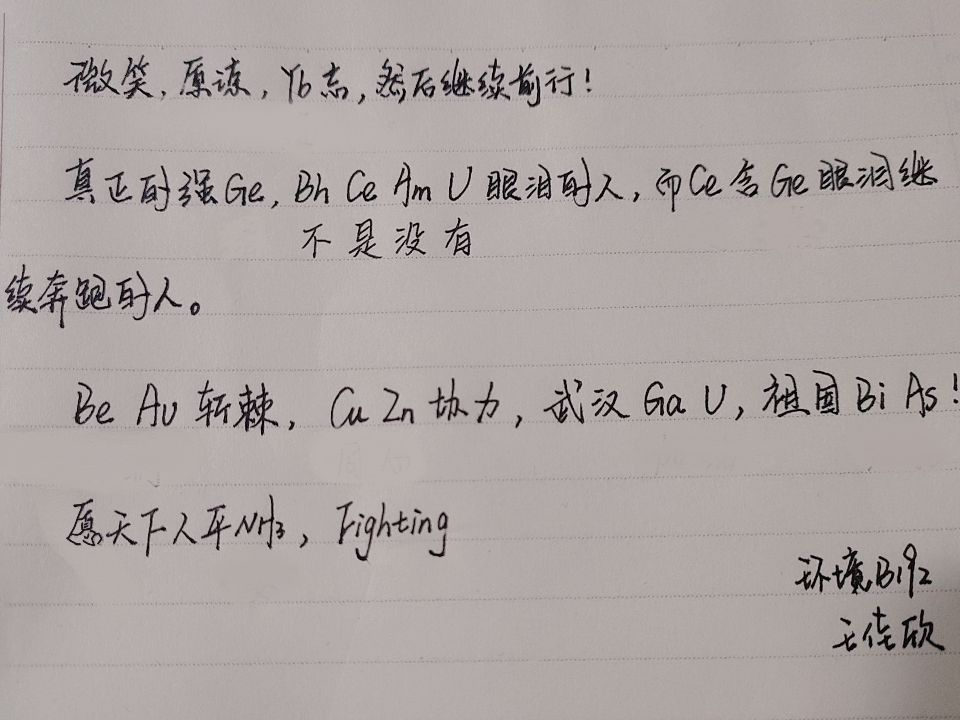 微笑,原谅,Yb志,然后继续前行!
真正的强Ge,Bh Ce Am U眼泪的人,而Ce含Ge眼泪继
不是没有
续奔跑的人。
Be Au 斩棘,Cu Zn 协力,武汉 Ga U,祖国 Bi As!
愿天下人平NH3,Fighting
环境B192
王佳欣